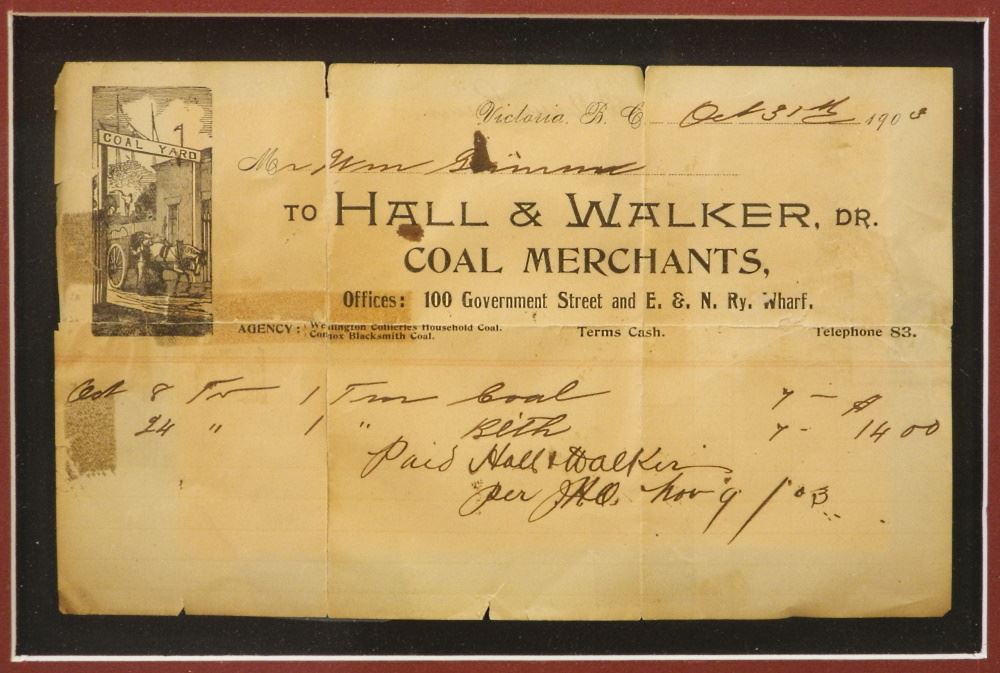 COAL YARD
Victoria, B. C. Oct 31th 1903
Mr Wm
TO HALL & WALKER, DR.
COAL MERCHANTS,
Offices: 100 Government Street and E. & N. Ry. Wharf.
AGENCY: Wellington Collieries Household Coal.
Comox Blacksmith Coal.
Terms Cash.
Telephone 83.
Oct 8 To 1 Ton Coal 7 - $
24 " 1 " 7 - 14 00
Paid Hall & Walker
per Nov 9/03